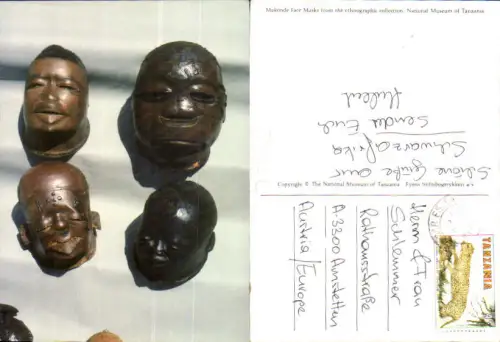 Makonde Face Masks from the ethnographic collection. National Museum of Tanzania
Schöne Grüße aus
Schwarzafrika
sendet Euch
Hubert
Copyright © The National Museum of Tanzania
Herrn & Frau
Schlemmer
Rathausstraße
A-3300 Amstetten
Austria/Europe
TANZANIA